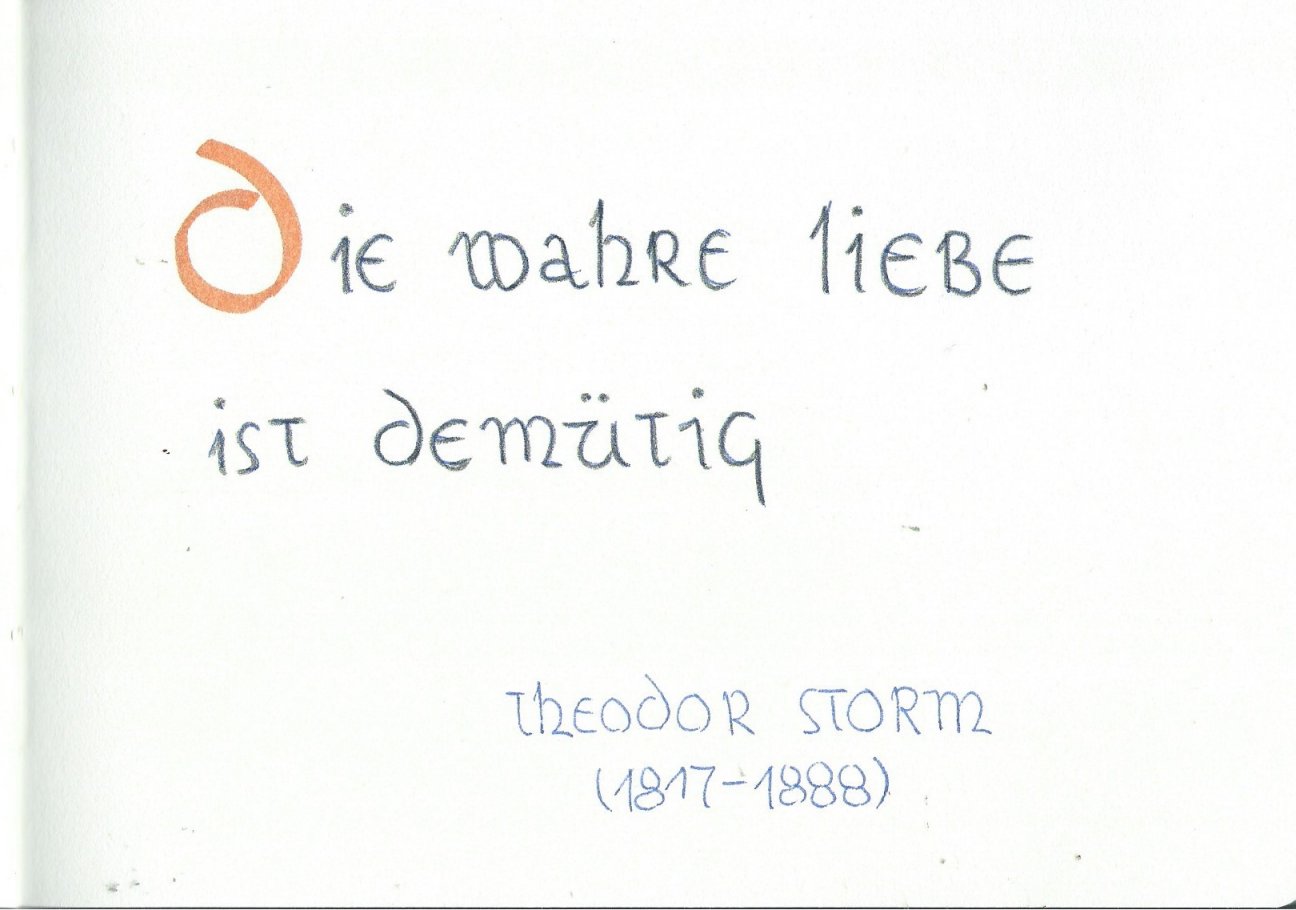 Die wahre Liebe
ist demütig
Theodor Storm
(1817-1888)